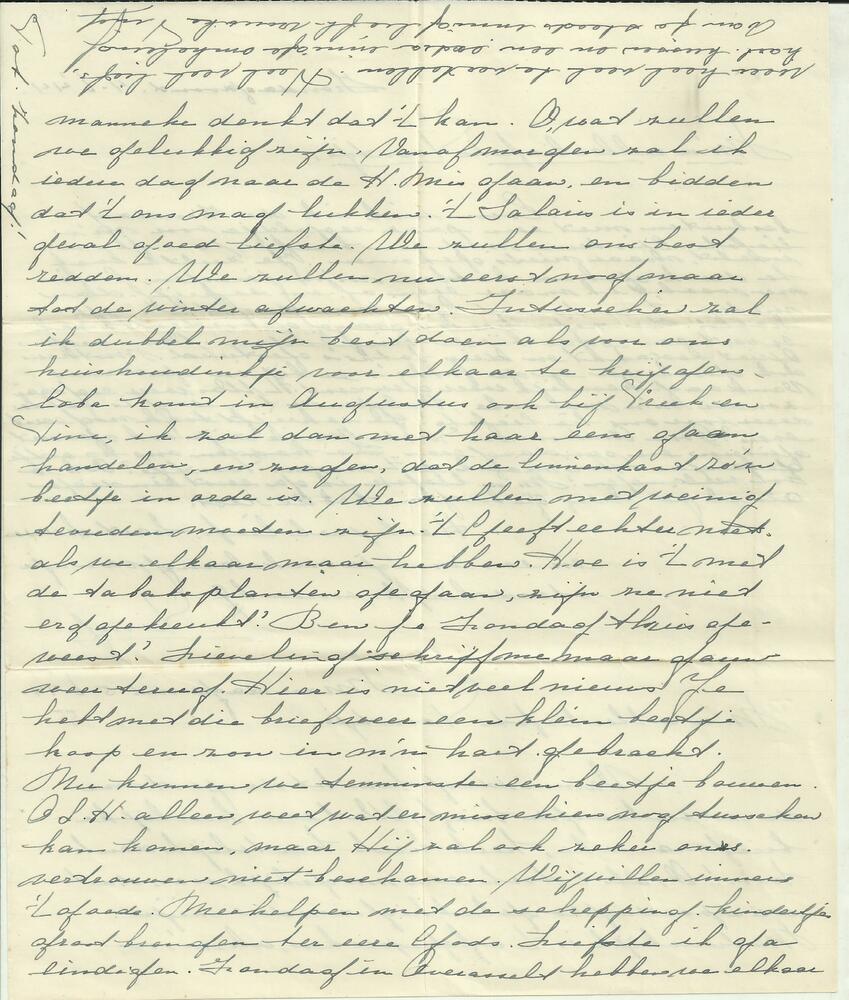 manneke denkt dat 't kan. O, wat zullen
we gelukkig zijn. Vanaf morgen zal ik
iedere dag naar de H. Mis gaan, en bidden
dat 't ons mag lukken. 't Salaris is in ieder
geval goed liefste. We zullen ons best
redden. We zullen nu eerst nog maar
tot de winter afwachten. Intusschen zal
ik dubbel mijn best doen als voor ons
huishoudinkje voor elkaar te krijgen.
komt in Augustus ook bij Truk en
Tini, ik zal dan met haar eens gaan
handelen, en zorgen, dat de linnenkast zo'n
beetje in orde is. We zullen met weinig
tevreden moeten zijn. 't Geeft echter niet.
als we elkaar maar hebben. Hoe is 't met
de tabaksplanten gegaan, zijn ze niet
erg gekreukt? Ben je Zondag thuis ge-
weest? Lieveling schrijf me maar gauw
weer terug. Hier is niet veel nieuws. Je
hebt met die brief weer een klein beetje
hoop en zon in m'n hart gebracht.
Nu kunnen we tenminste een beetje bouwen.
O.L.H. alleen weet wat er misschien nog tusschen
kan komen, maar Hij zal ook zeker ons
vertrouwen niet beschamen. Wij willen immers
't goede. Meehelpen met de schepping. kindertjes
groot brengen ter eere Gods. Liefste ik ga
eindigen. Zondag in Overasselt hebben we elkaar
weer heel veel te vertellen. veel liefs,
van je steeds innig
Tot Zondag!